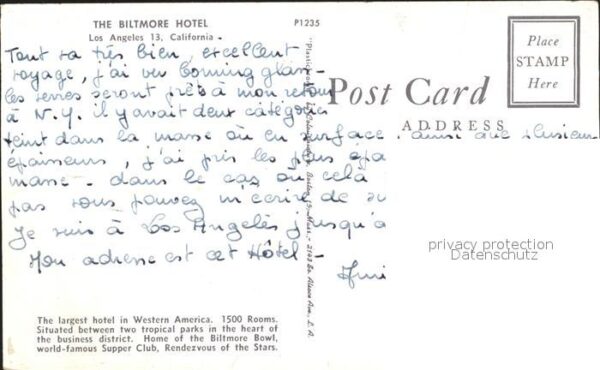 THE BILTMORE HOTEL
Los Angeles 13, California
P1235
Place
STAMP
Here
Post Card
ADDRESS
Tout va très bien, excellent
voyage, j'ai vu Corning glass -
les verres seront prêts à mon retour
à N.Y. il y avait deux catégories
teint dans la masse ou en surface. ainsi que plusieurs
épaisseurs, j'ai pris les plus épa
masse - dans le cas où cela
pas vous pouvez m'écrire de su
Je suis à Los Angelès jusqu'a
Mon adresse est cet Hôtel -
privacy protection
Datenschutz
The largest hotel in Western America. 1500 Rooms.
Situated between two tropical parks in the heart of
the business district. Home of the Biltmore Bowl,
world-famous Supper Club, Rendezvous of the Stars.